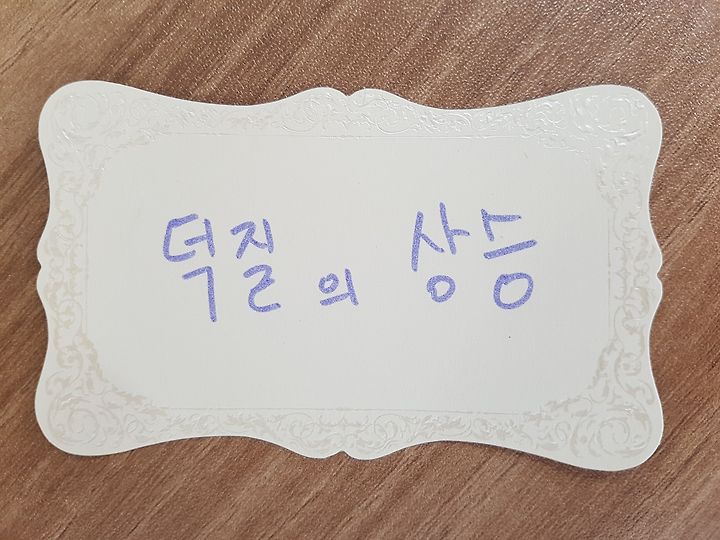 덕질의 상승